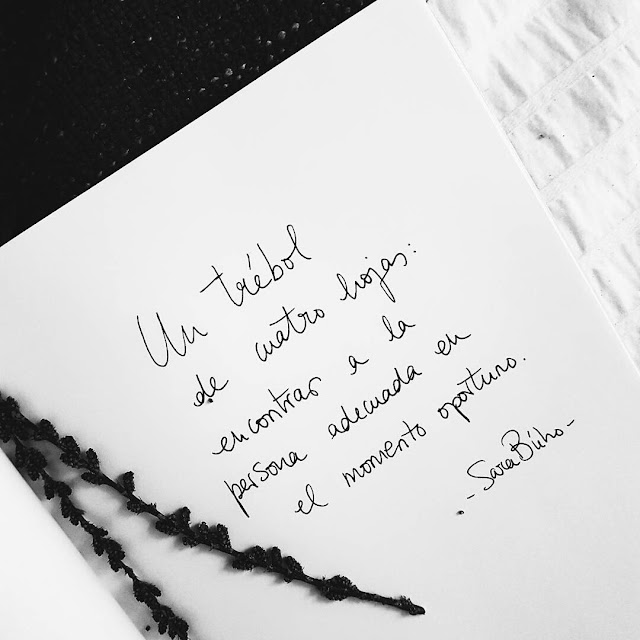 Un trébol
de cuatro hojas:
encontrar a la
persona adecuada en
el momento oportuno.
-SaraBúho-